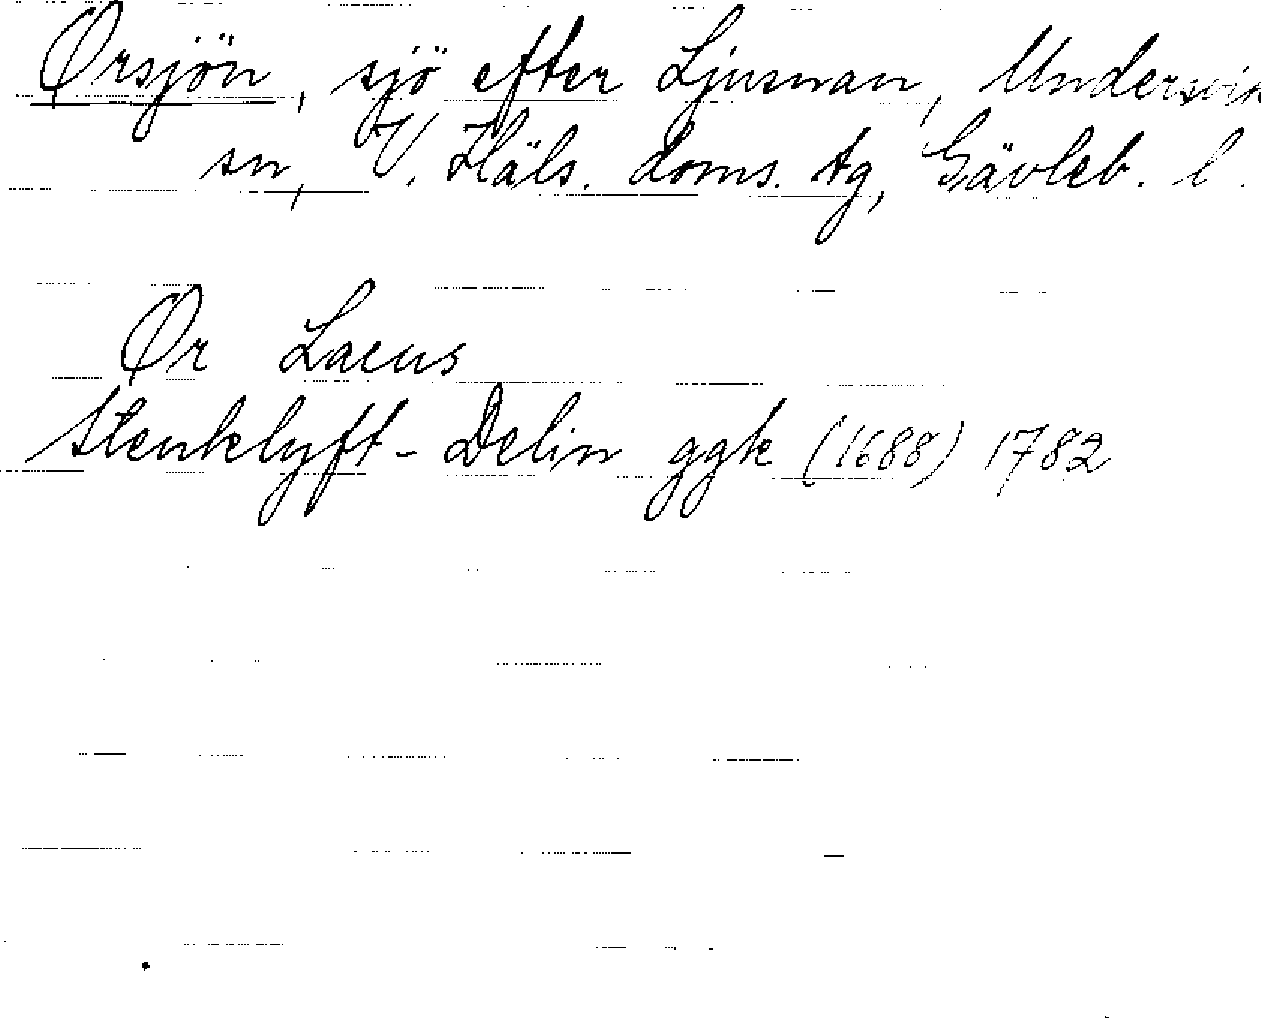 Ørsjön, sjö efter Ljusnan, Undersvik
sn, V. Häls. doms. tg, Gävleb. l.
Ør Lacus
Stenklyft-Delin ggk (1688) 1782